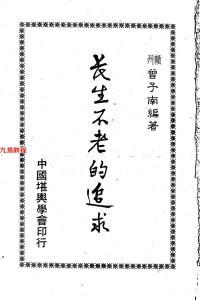 贛州 曾子南編著
長生不老的追求
中國堪輿學會印行
九易教程